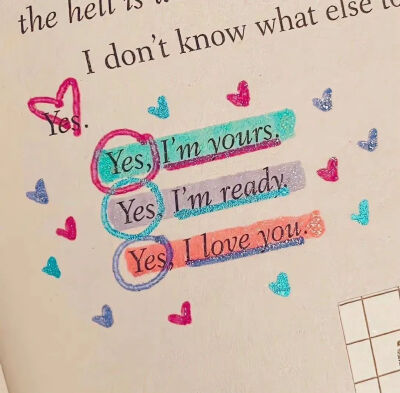 the hell is
I don't know what else to
Yes.
Yes, I'm yours.
Yes, I'm ready.
Yes, I love you.